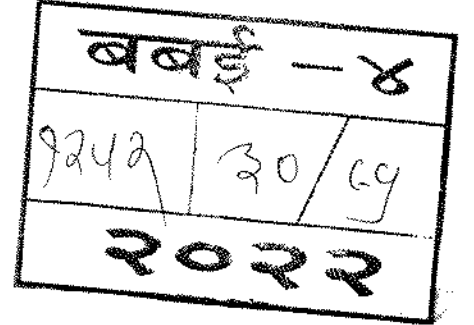 बबई - ४
१२५२ ३० /
२०२२